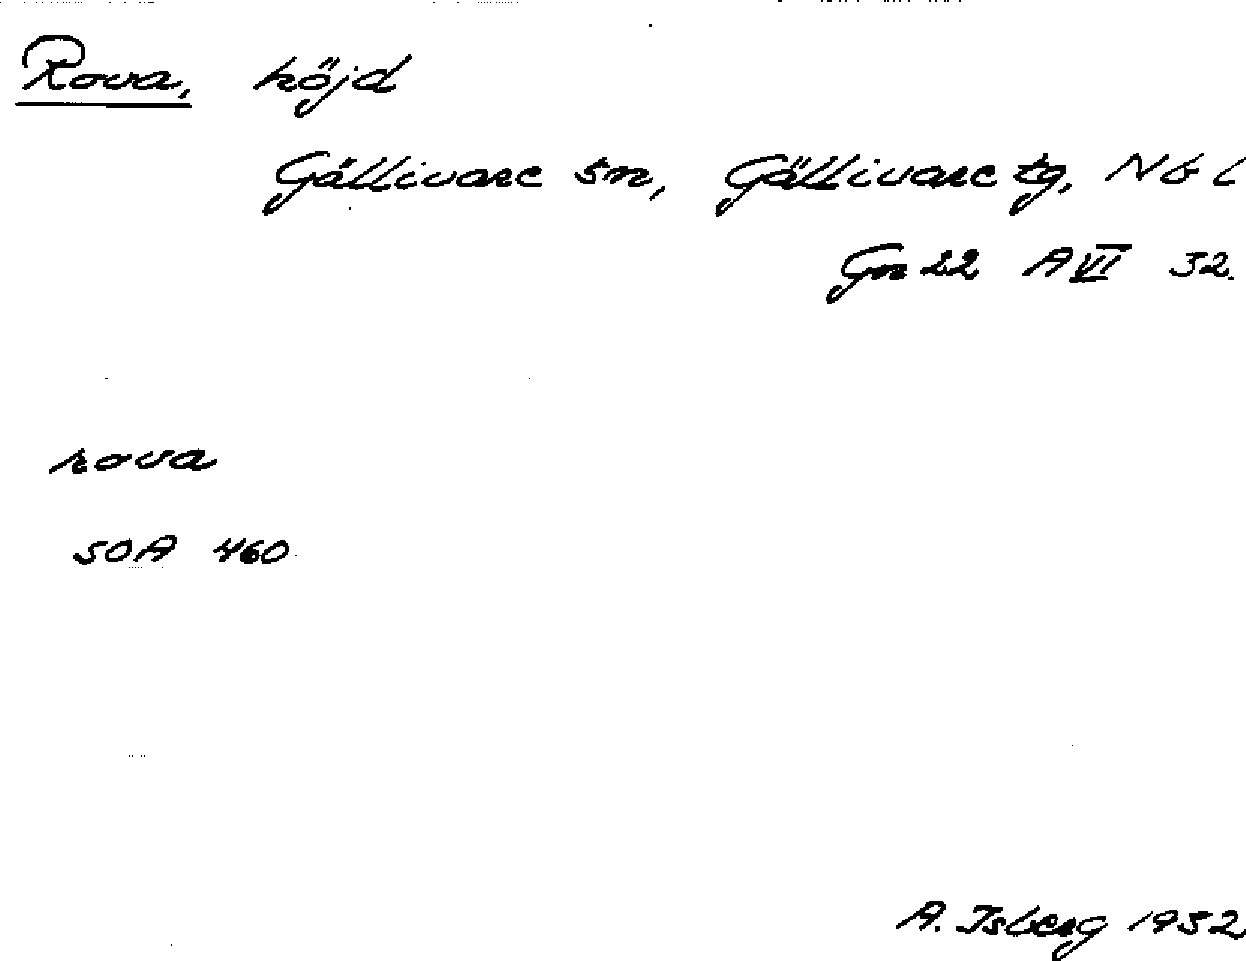 Rova, höjd
Gällivare sn, Gällivare tg, Nb L
Gn 22 A VI 32.
rova
SOA 460
A. Isberg 1932